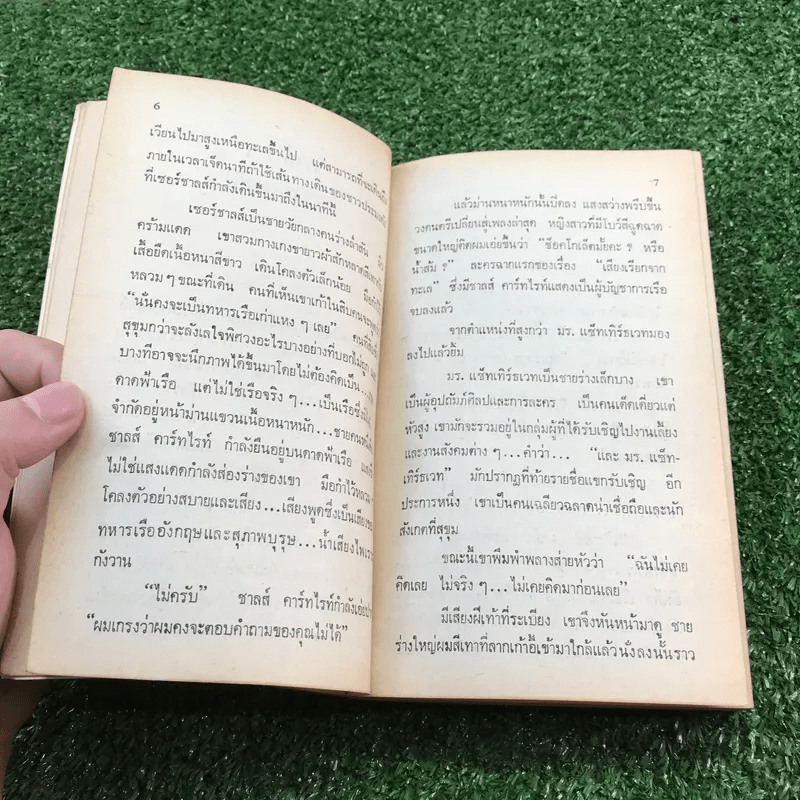 6
เวียนไปมาสูงเหนือทะเลขึ้นไป แต่สามารถที่จะเดินถึง
ภายในเวลาเจ็ดนาทีถ้าใช้เส้นทางเดินของชาวประมง
ที่เซอร์ชาลส์กำลังเดินขึ้นมาถึงในนาทีนี้
เซอร์ชาลส์เป็นชายวัยกลางคนร่างล่ำสัน
คร้ามแดด เขาสวมกางเกงขายาวผ้าสักหลาดสีเทา
เสื้อยืดเนื้อหนาสีขาว เดินโคลงตัวเล็กน้อย
หลวม ๆ ขณะที่เดิน คนที่เห็นเขาเก้าในสิบคนจะ
“นั่นคงจะเป็นทหารเรือเก่าแหง ๆ เลย”
สุขุมกว่าจะลังเลใจพิศวงอะไรบางอย่างที่บอกไม่ถูก
บางทีอาจจะนึกภาพได้ขึ้นมาโดยไม่ต้องคิดเป็น...
ดาดฟ้าเรือ แต่ไม่ใช่เรือจริง ๆ...เป็นเรือซึ่ง
จำกัดอยู่หน้าม่านแขวนเนื้อหนาหนัก...ชายคนหนึ่ง
ชาลส์ คาร์ทไรท์ กำลังยืนอยู่บนดาดฟ้าเรือ
ไม่ใช่แสงแดดกำลังส่องร่างของเขา มือกำไว้หลวม
โคลงตัวอย่างสบายและเสียง...เสียงพูดซึ่งเป็นเสียงของ
ทหารเรืออังกฤษและสุภาพบุรุษ...น้ำเสียงไพเราะ
กังวาน
“ไม่ครับ” ชาลส์ คาร์ทไรท์กำลังเอ่ย
“ผมเกรงว่าผมคงจะตอบคำถามของคุณไม่ได้”
7
แล้วม่านหนาหนักนั้นปิดลง แสงสว่างพรึบขึ้น
วงดนตรีเปลี่ยนสู่เพลงล่าสุด หญิงสาวที่มีโบว์สีฉูดฉาด
ขนาดใหญ่ติดผมเอ่ยขึ้นว่า “ช็อคโกเล็ตมั้ยคะ ? หรือ
น้ำส้ม ?” ละครฉากแรกของเรื่อง “เสียงเรียกจาก
ทะเล” ซึ่งมีชาลส์ คาร์ทไรท์แสดงเป็นผู้บัญชาการเรือ
จบลงแล้ว
จากตำแหน่งที่สูงกว่า มร. แซ็ทเทิร์ธเวทมอง
ลงไปแล้วยิ้ม
มร. แซ็ทเทิร์ธเวทเป็นชายร่างเล็กบาง เขา
เป็นผู้อุปถัมภ์ศิลปและการละคร เป็นคนเด็ดเดี่ยวแต่
หัวสูง เขามักจะรวมอยู่ในกลุ่มผู้ที่ได้รับเชิญไปงานเลี้ยง
และงานสังคมต่าง ๆ...คำว่า... “และ มร. แซ็ท-
เทิร์ธเวท” มักปรากฏที่ท้ายรายชื่อแขกรับเชิญ อีก
ประการหนึ่ง เขาเป็นคนเฉลียวฉลาดน่าเชื่อถือและนัก
สังเกตที่สุขุม
ขณะนี้เขาพึมพำพลางส่ายหัวว่า “ฉันไม่เคย
คิดเลย ไม่จริง ๆ...ไม่เคยคิดมาก่อนเลย”
มีเสียงฝีเท้าที่ระเบียง เขาจึงหันหน้ามาดู ชาย
ร่างใหญ่ผมสีเทาที่ลากเก้าอี้เข้ามาใกล้แล้วนั่งลงนั้นราว